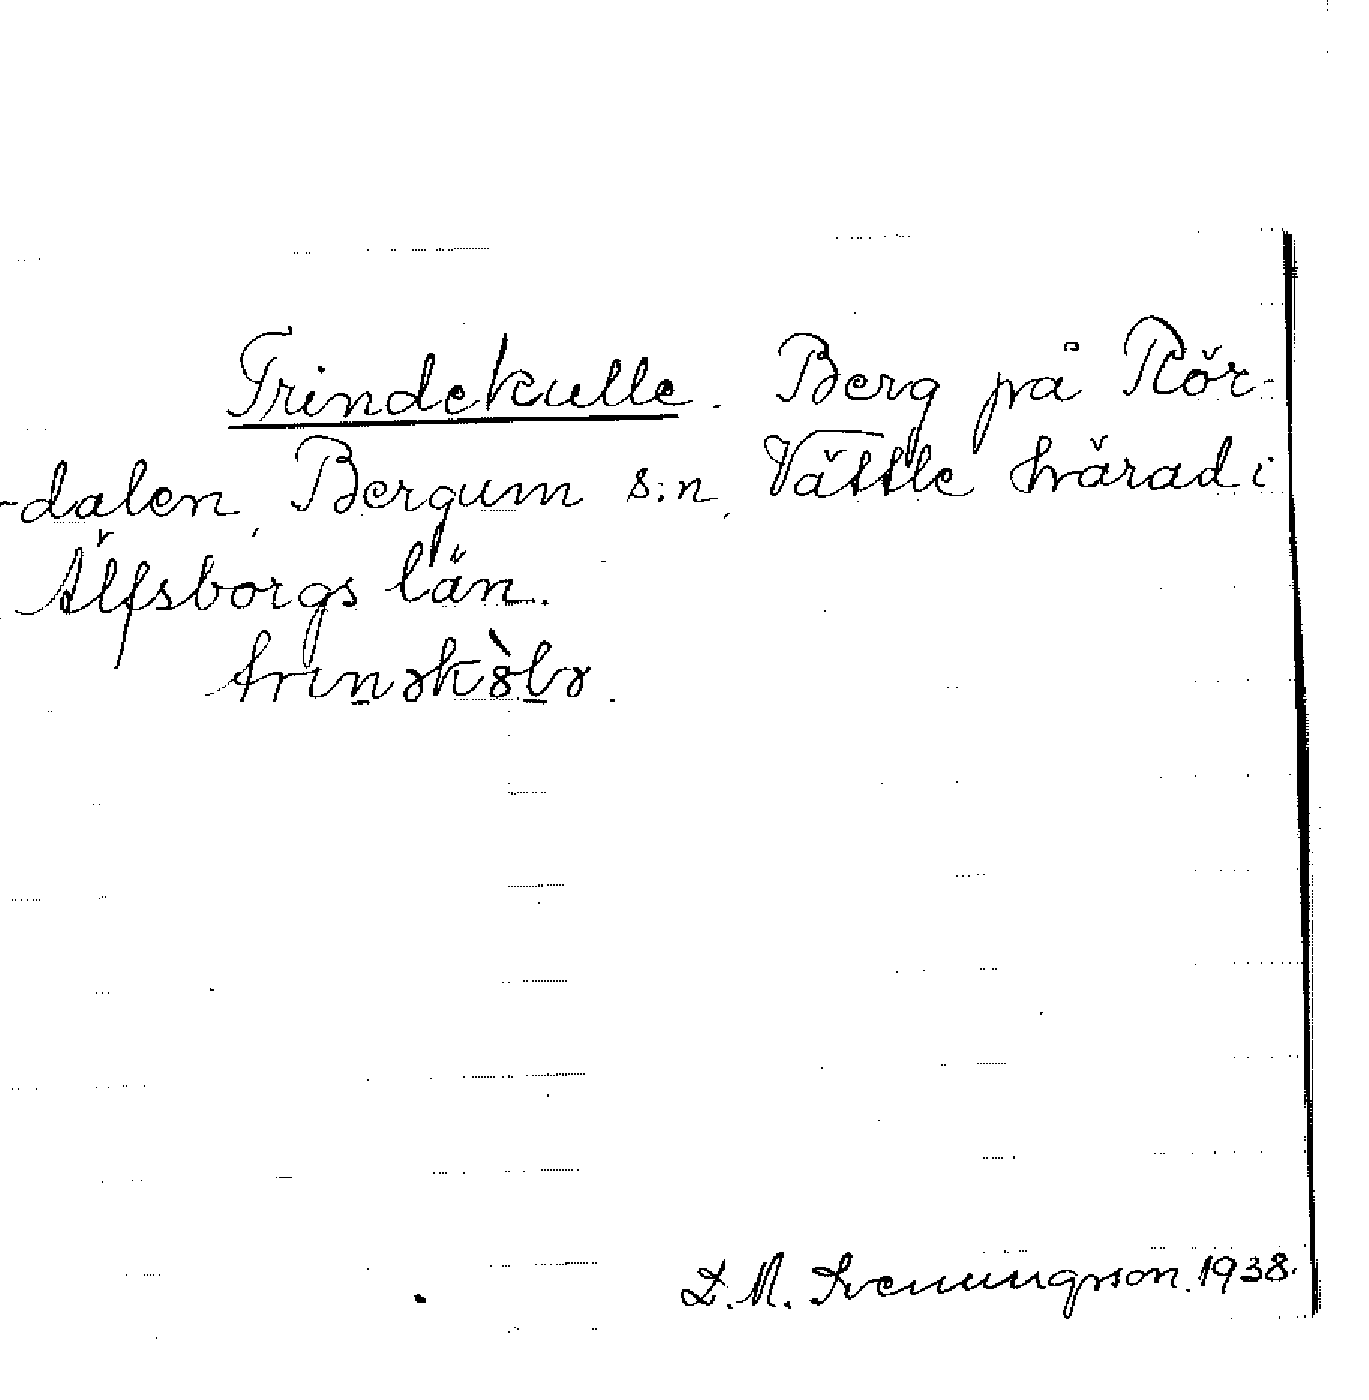 Trindekulle. Berg på Rör-
-dalen, Bergum s:n, Vättle härad i
Älfsborgs län.
D. M. 1938.